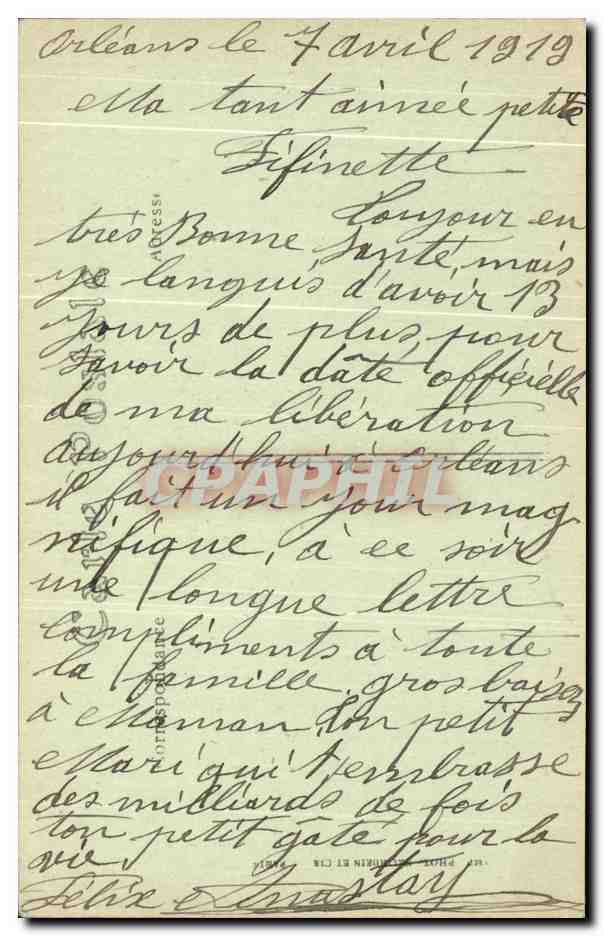 Orléans le 7 avril 1919
Ma tant aimée petite
Fifinette
Toujour en
très Bonne, santé, mais
je languis d'avoir 13
jours de plus, pour
savoir la date officiélle
de ma libération
aujourd'hui à Orléans
il fait un jour mag
nifique, à ce soir
une longue lettre
compliments à toute
la famille, gros baiser
à Maman, Ton petit
Mari qui t'embrasse
des milliards de fois
ton petit gâté pour la
vie
Félix Anastay
Carte Postale
Correspondance
Adresse
CPAPHIL
PHOT. ET CIE PARIS